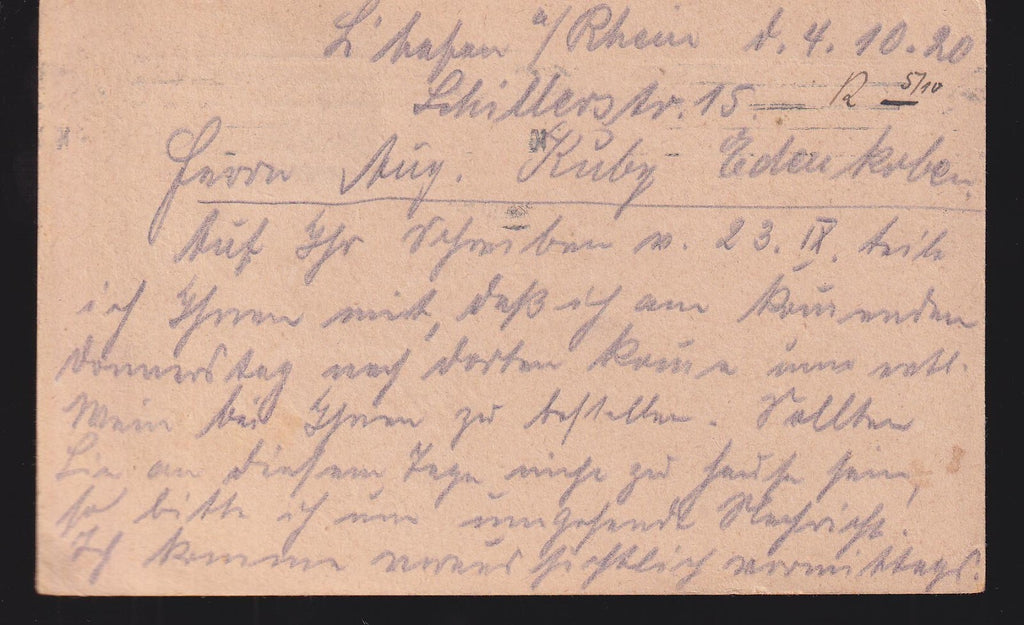 L'hafen a/Rhein d. 4. 10. 20
Schillerstr. 15.
R 5/10
Herrn Aug. Kuby Edenkoben.
Auf Ihr Schreiben v. 23. IX. teile
ich Ihnen mit, daß ich am kom̅enden
Donnerstag nach dorten kom̅e um evtl.
Wein bei Ihnen zu bestellen. Sollten
Sie an diesem Tage nicht zu Hause sein,
so bitte ich um umgehende Nachricht.
Ich komme voraussichtlich vormittags.